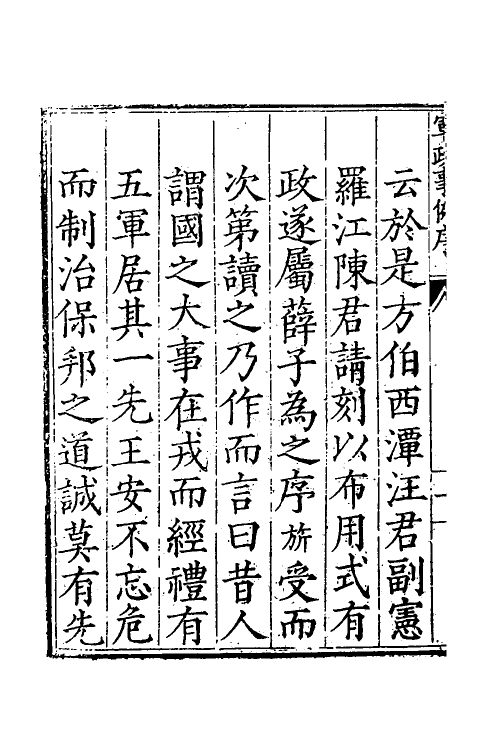 云於是方伯西潭汪君副憲
羅江陳君請刻以布用式有
政遂屬薛子為之序旂受而
次第讀之乃作而言曰昔人
謂國之大事在戎而經禮有
五軍居其一先王安不忘危
而制治保邦之道誠莫有先